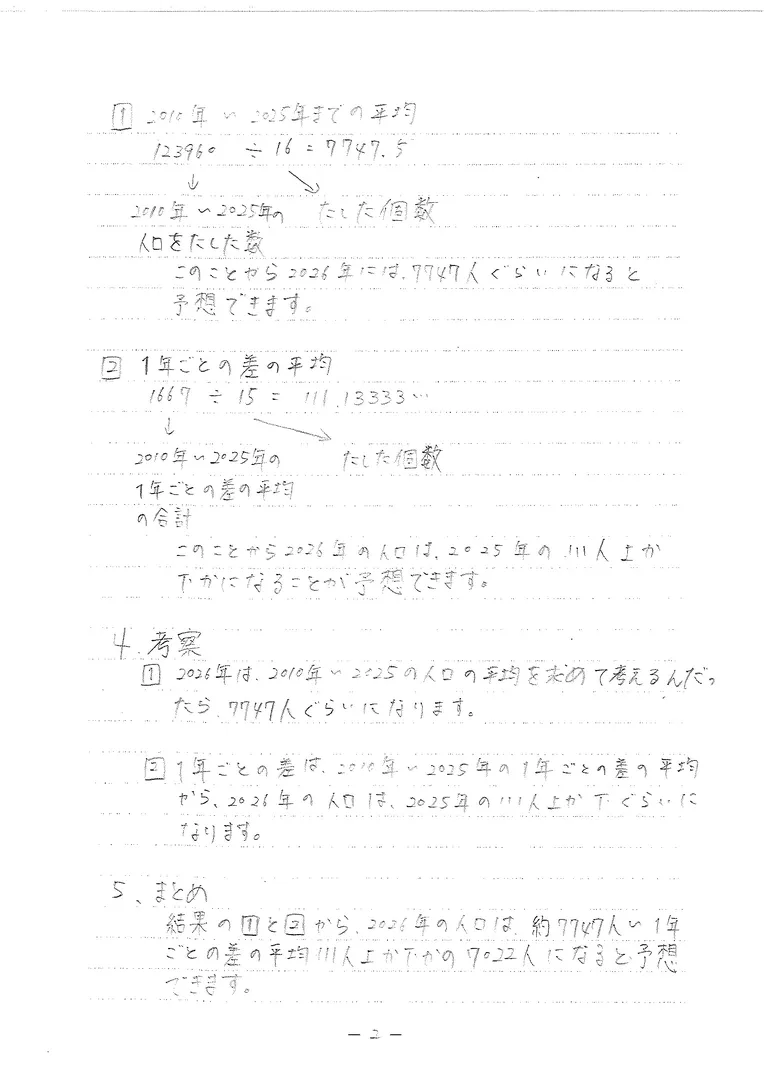 1 2010年～2025年までの平均
123960 ÷ 16 = 7747.5
↓ ↘
2010年～2025年の たした個数
人口をたした数
このことから2026年には、7747人ぐらいになると
予想できます。
2 1年ごとの差の平均
1667 ÷ 15 = 111.13333…
↓ ↘
2010年～2025年の たした個数
1年ごとの差の平均
の合計
このことから2026年の人口は、2025年の111人上か
下かになることが予想できます。
4.考察
1 2026年は、2010年～2025の人口の平均を求めて考えるんだっ
たら、7747人ぐらいになります。
2 1年ごとの差は、2010年～2025年の1年ごとの差の平均
から、2026年の人口は、2025年の111人上か下ぐらいに
なります。
5、まとめ
結果の1と2から、2026年の人口は、約7747人～1年
ごとの差の平均111人上か下かの7022人になると予想
できます。
- 2 -